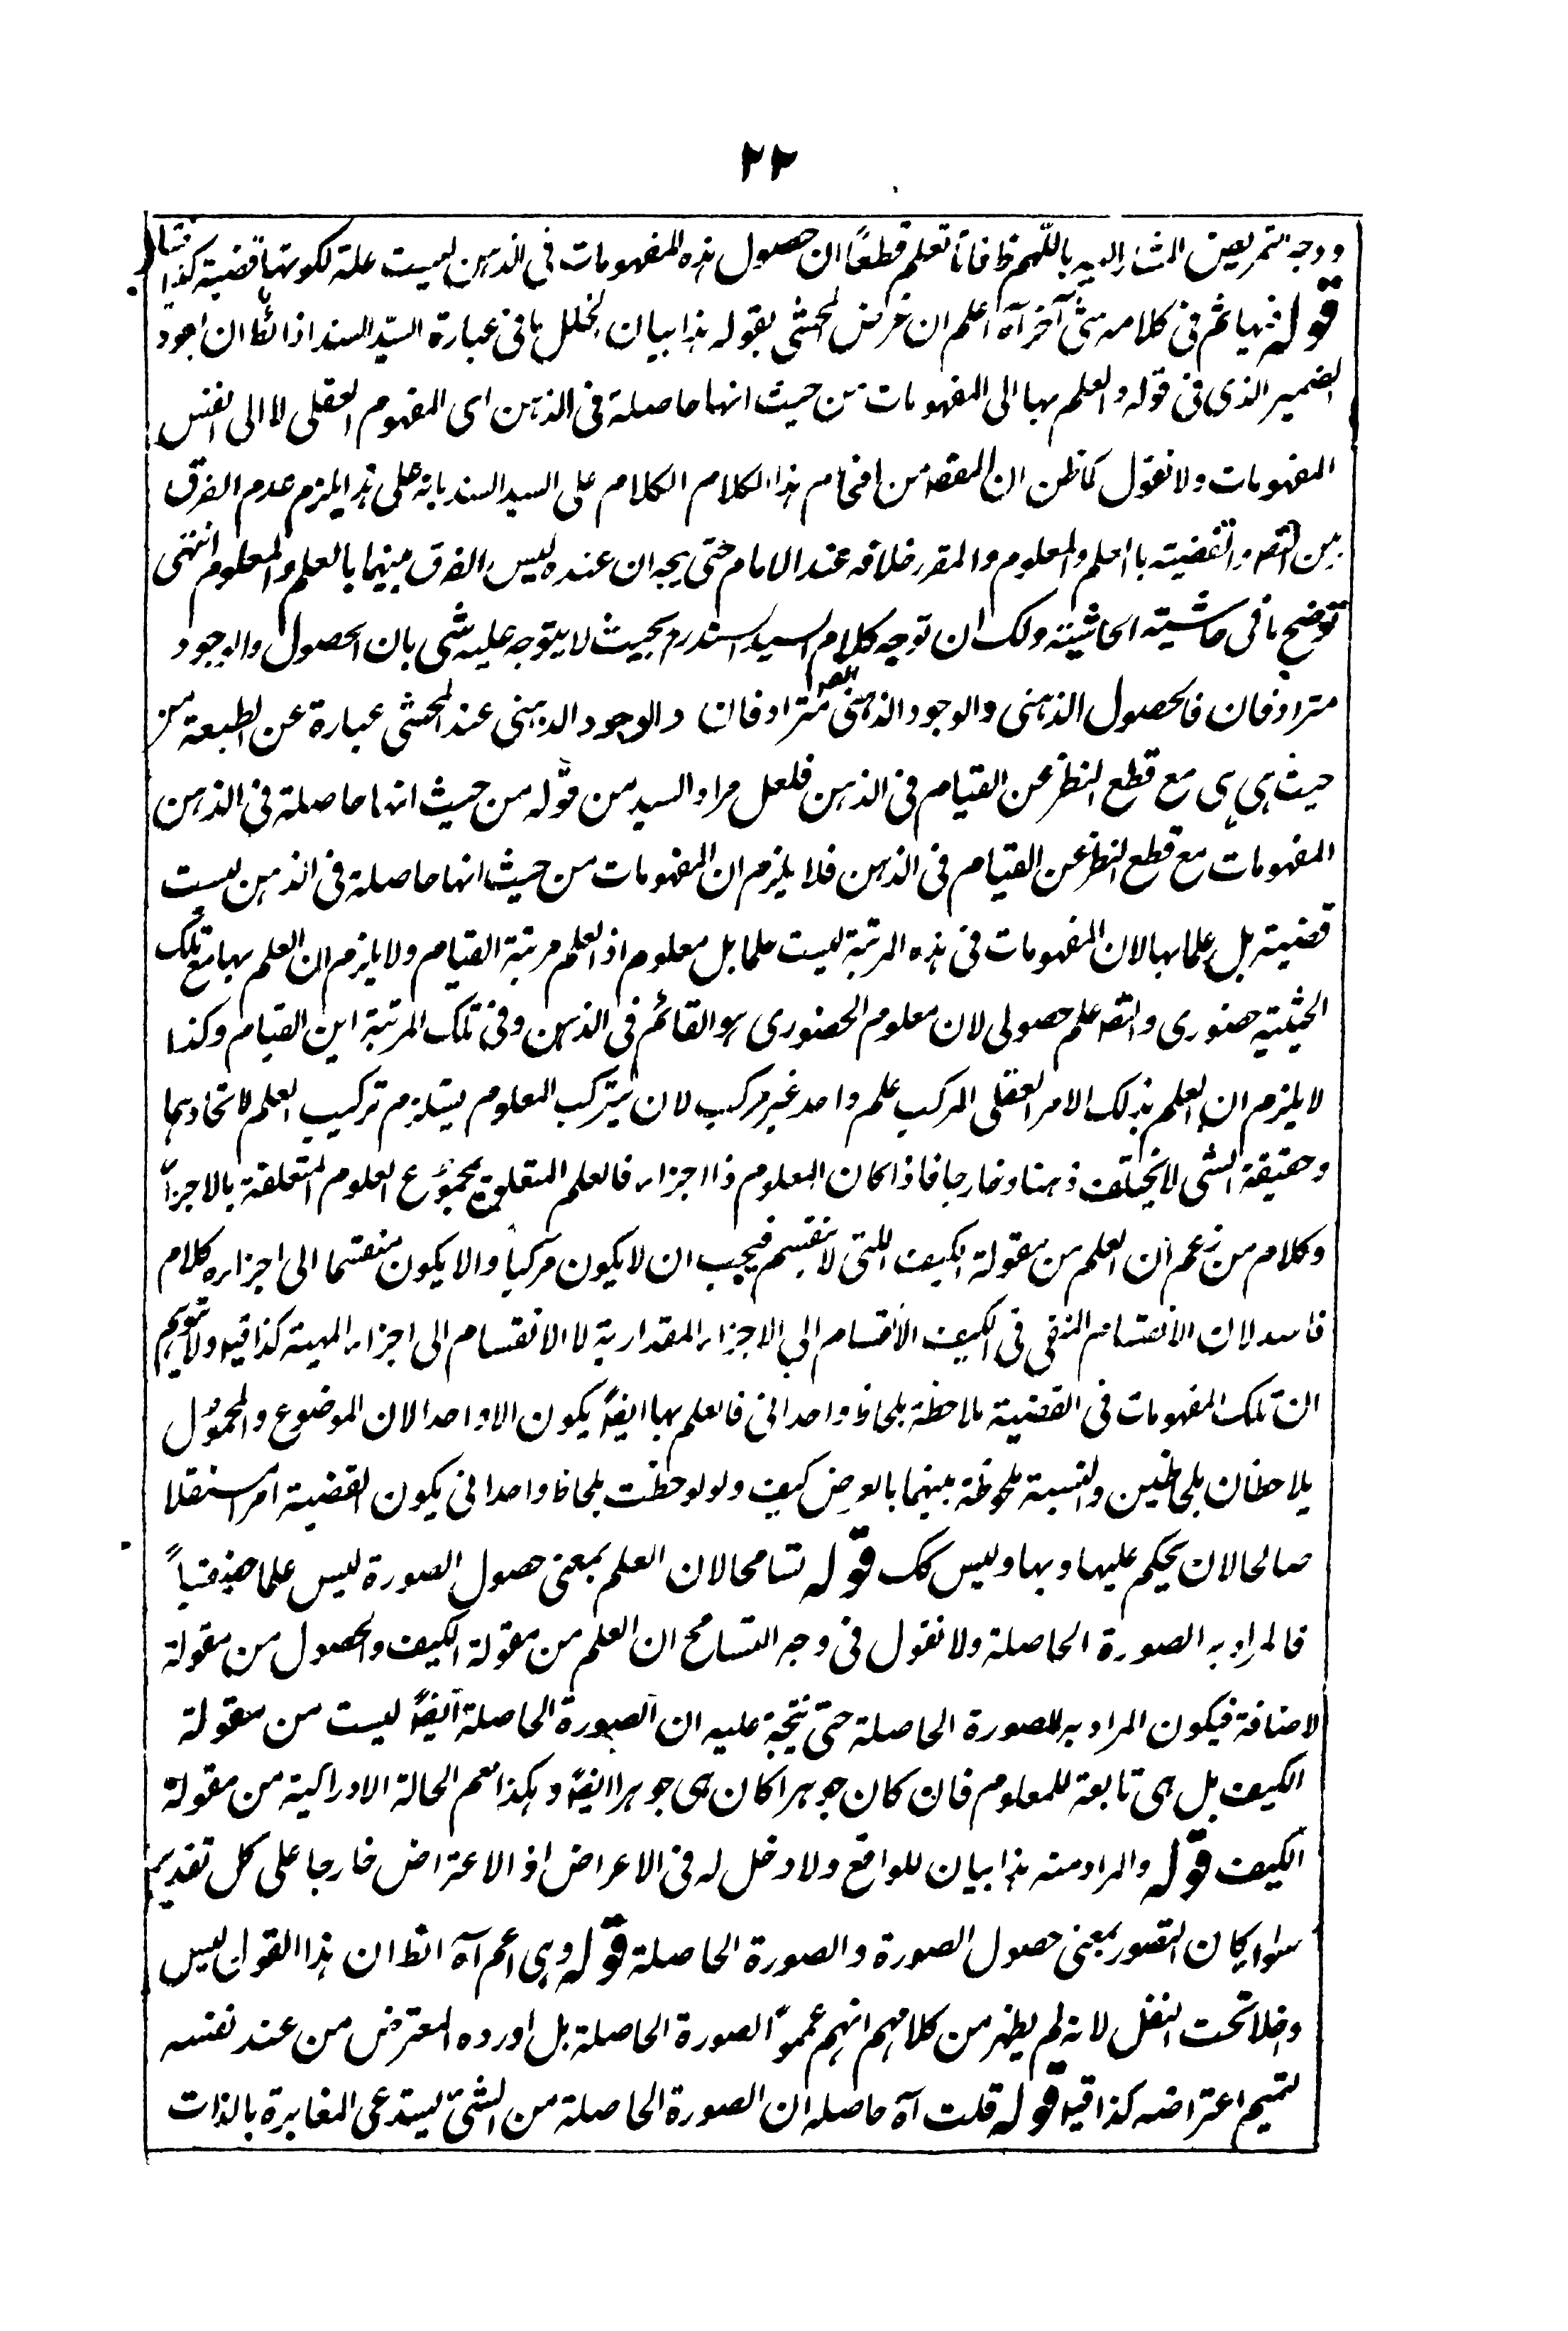 ٢٢
ووجه التمريض المشار اليه باللهم ظ فانا نعلم قطعاً ان حصول هذه المفهومات في الذهن ليست علة لكونها قضية كذا
قوله فيها ثم في كلامه شئ آخر آه اعلم ان غرض المحشي بقوله هذا بيان الخلل بافي عبارة السيد السند اذ الظ ان
الضمير الذي في قوله والعلم بها الى المفهومات من حيث انها حاصلة في الذهن اى المفهوم العقلي لا الى انفس
المفهومات ولا نقول كما ظن ان المقصد من هذا الكلام الكلام على السيد السند بانه على هذا يلزم عدم الفرق
بين التصد والقضية بالعلم والمعلوم والمقرر خلافه عند الامام حتى يجه ان عنده ليس الفرق بينهما بالعلم والمعلوم انتهى
توضيح ما في حاشية الحاشية ولك ان توجه كلام السيد السند رم بحيث لا يتوجه عليه شى بان الحصول والوجود
مترادفان فالحصول الذهني والوجود الذهني ايضا مترادفان والوجود الذهني عند المحشي عبارة عن الطبيعة من
حيث هي هي مع قطع النظر عن القيام في الذهن فلعل مراد السيد من قوله من حيث انها حاصلة في الذهن
المفهومات مع قطع النظر عن القيام في الذهن فلا يلزم ان المفهومات من حيث انها حاصلة في الذهن ليست
قضية بل علما بها لان المفهومات في هذه المرتبة ليست علما بل معلوم اذ العلم مرتبة القيام ولا يلزم ان العلم بها مع تلك
الحيثية حضوري والتصد علم حصولي لان معلوم الحضوري هو القائم في الذهن وفي تلك المرتبة اين القيام وكذا
لا يلزم ان العلم بذلك الامر العقلي المركب علم واحد غير مركب لان تركب المعلوم يستلزم تركيب العلم لاتحادهما
وحقيقة الشى لا يختلف ذهنا وخارجا فاذا كان المعلوم ذا اجزاء فالعلم المتعلق به مجموع العلوم المتعلقة بالاجزاء
وكلام من زعم ان العلم من مقولة الكيف التي لا تنقسم فيجب ان لا يكون مركبا والا يكون منقسما الى اجزاءه كلام
فاسد لان الانقسام المنفي في الكيف الانقسام الى الاجزاء المقدارية لا الانقسام الى اجزاء المهية كذا قيل ولا يتوهم
ان تلك المفهومات في القضية ملاحظة بلحاظ واحداني فالعلم بها ايضً يكون الا واحدا لان الموضوع والمحمول
يلاحظان بلحاظين والنسبة ملحوظة بينهما بالعرض كيف ولو لوحظت بلحاظ واحداني يكون القضية امرا مستقلا
صالحا لان يحكم عليها وبها وليس كك قوله تسامحا لان العلم بمعنى حصول الصورة ليس علما حقيقياً
فالمراد به الصورة الحاصلة ولا نقول في وجه التسامح ان العلم من مقولة الكيف والحصول من مقولة
لاضافة فيكون المراد به الصورة الحاصلة حتى يتجه عليه ان الصورة الحاصلة ايضً ليست من مقولة
الكيف بل هى تابعة للمعلوم فان كان جوهرا كان هى جوهرا ايضً وهكذا نعم الحالة الادراكية من مقولة
الكيف قوله والمراد منه هذا بيان للواقع ولا دخل له في الاعراض اذ الاعتراض خارجا على كل تقدير
سواء كان التصور بمعنى حصول الصورة والصورة الحاصلة قوله وهي اعم آه الظ ان هذا القول ليس
داخلا تحت النقل لانه لم يظهر من كلامهم انهم عمموا الصورة الحاصلة بل اورده المعترض من عند نفسه
لتتميم اعتراضه كذا قيل قوله قلت آه حاصله ان الصورة الحاصلة من الشئ يستدعى المغايرة بالذات